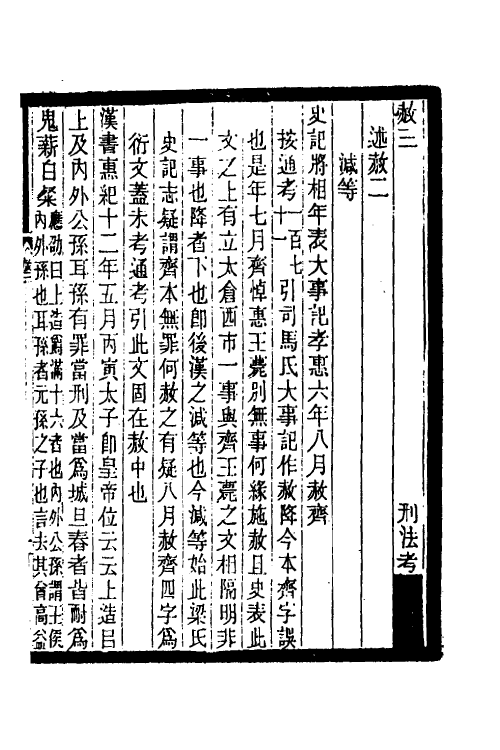 赦三　刑法考
述赦二
減等
史記將相年表大事記孝惠六年八月赦齊
按通考一百七十一引司馬氏大事記作赦降今本齊字誤
也是年七月齊悼惠王薨別無事何緣施赦且史表此
文之上有立太倉西市一事與齊王薨之文相隔明非
一事也降者下也卽後漢之減等也今減等始此梁氏
史記志疑謂齊本無罪何赦之有疑八月赦齊四字爲
衍文蓋未考通考引此文固在赦中也
漢書惠紀十二年五月丙寅太子卽皇帝位云云上造呂
上及內外公孫耳孫有罪當刑及當爲城旦舂者皆耐爲
鬼薪白粲應劭曰上造爵滿十六者也內外公孫謂王侯
內外孫也耳孫者元孫之子也言去其曾高益